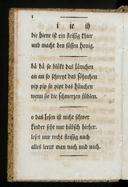 i ie ih
die biene ist ein fleissig thier
und macht den süssen honig.
bä bä so bläkt das lämchen
an an so schreyt das söhnchen
pip pip so pipt das hänchen
wenn sie die schmerzen fühlen.
o das lesen ist nicht schwer
kinder seht nur hübsch hieher.
leset nur recht fleissig nach
alles lernt man nach und nach.